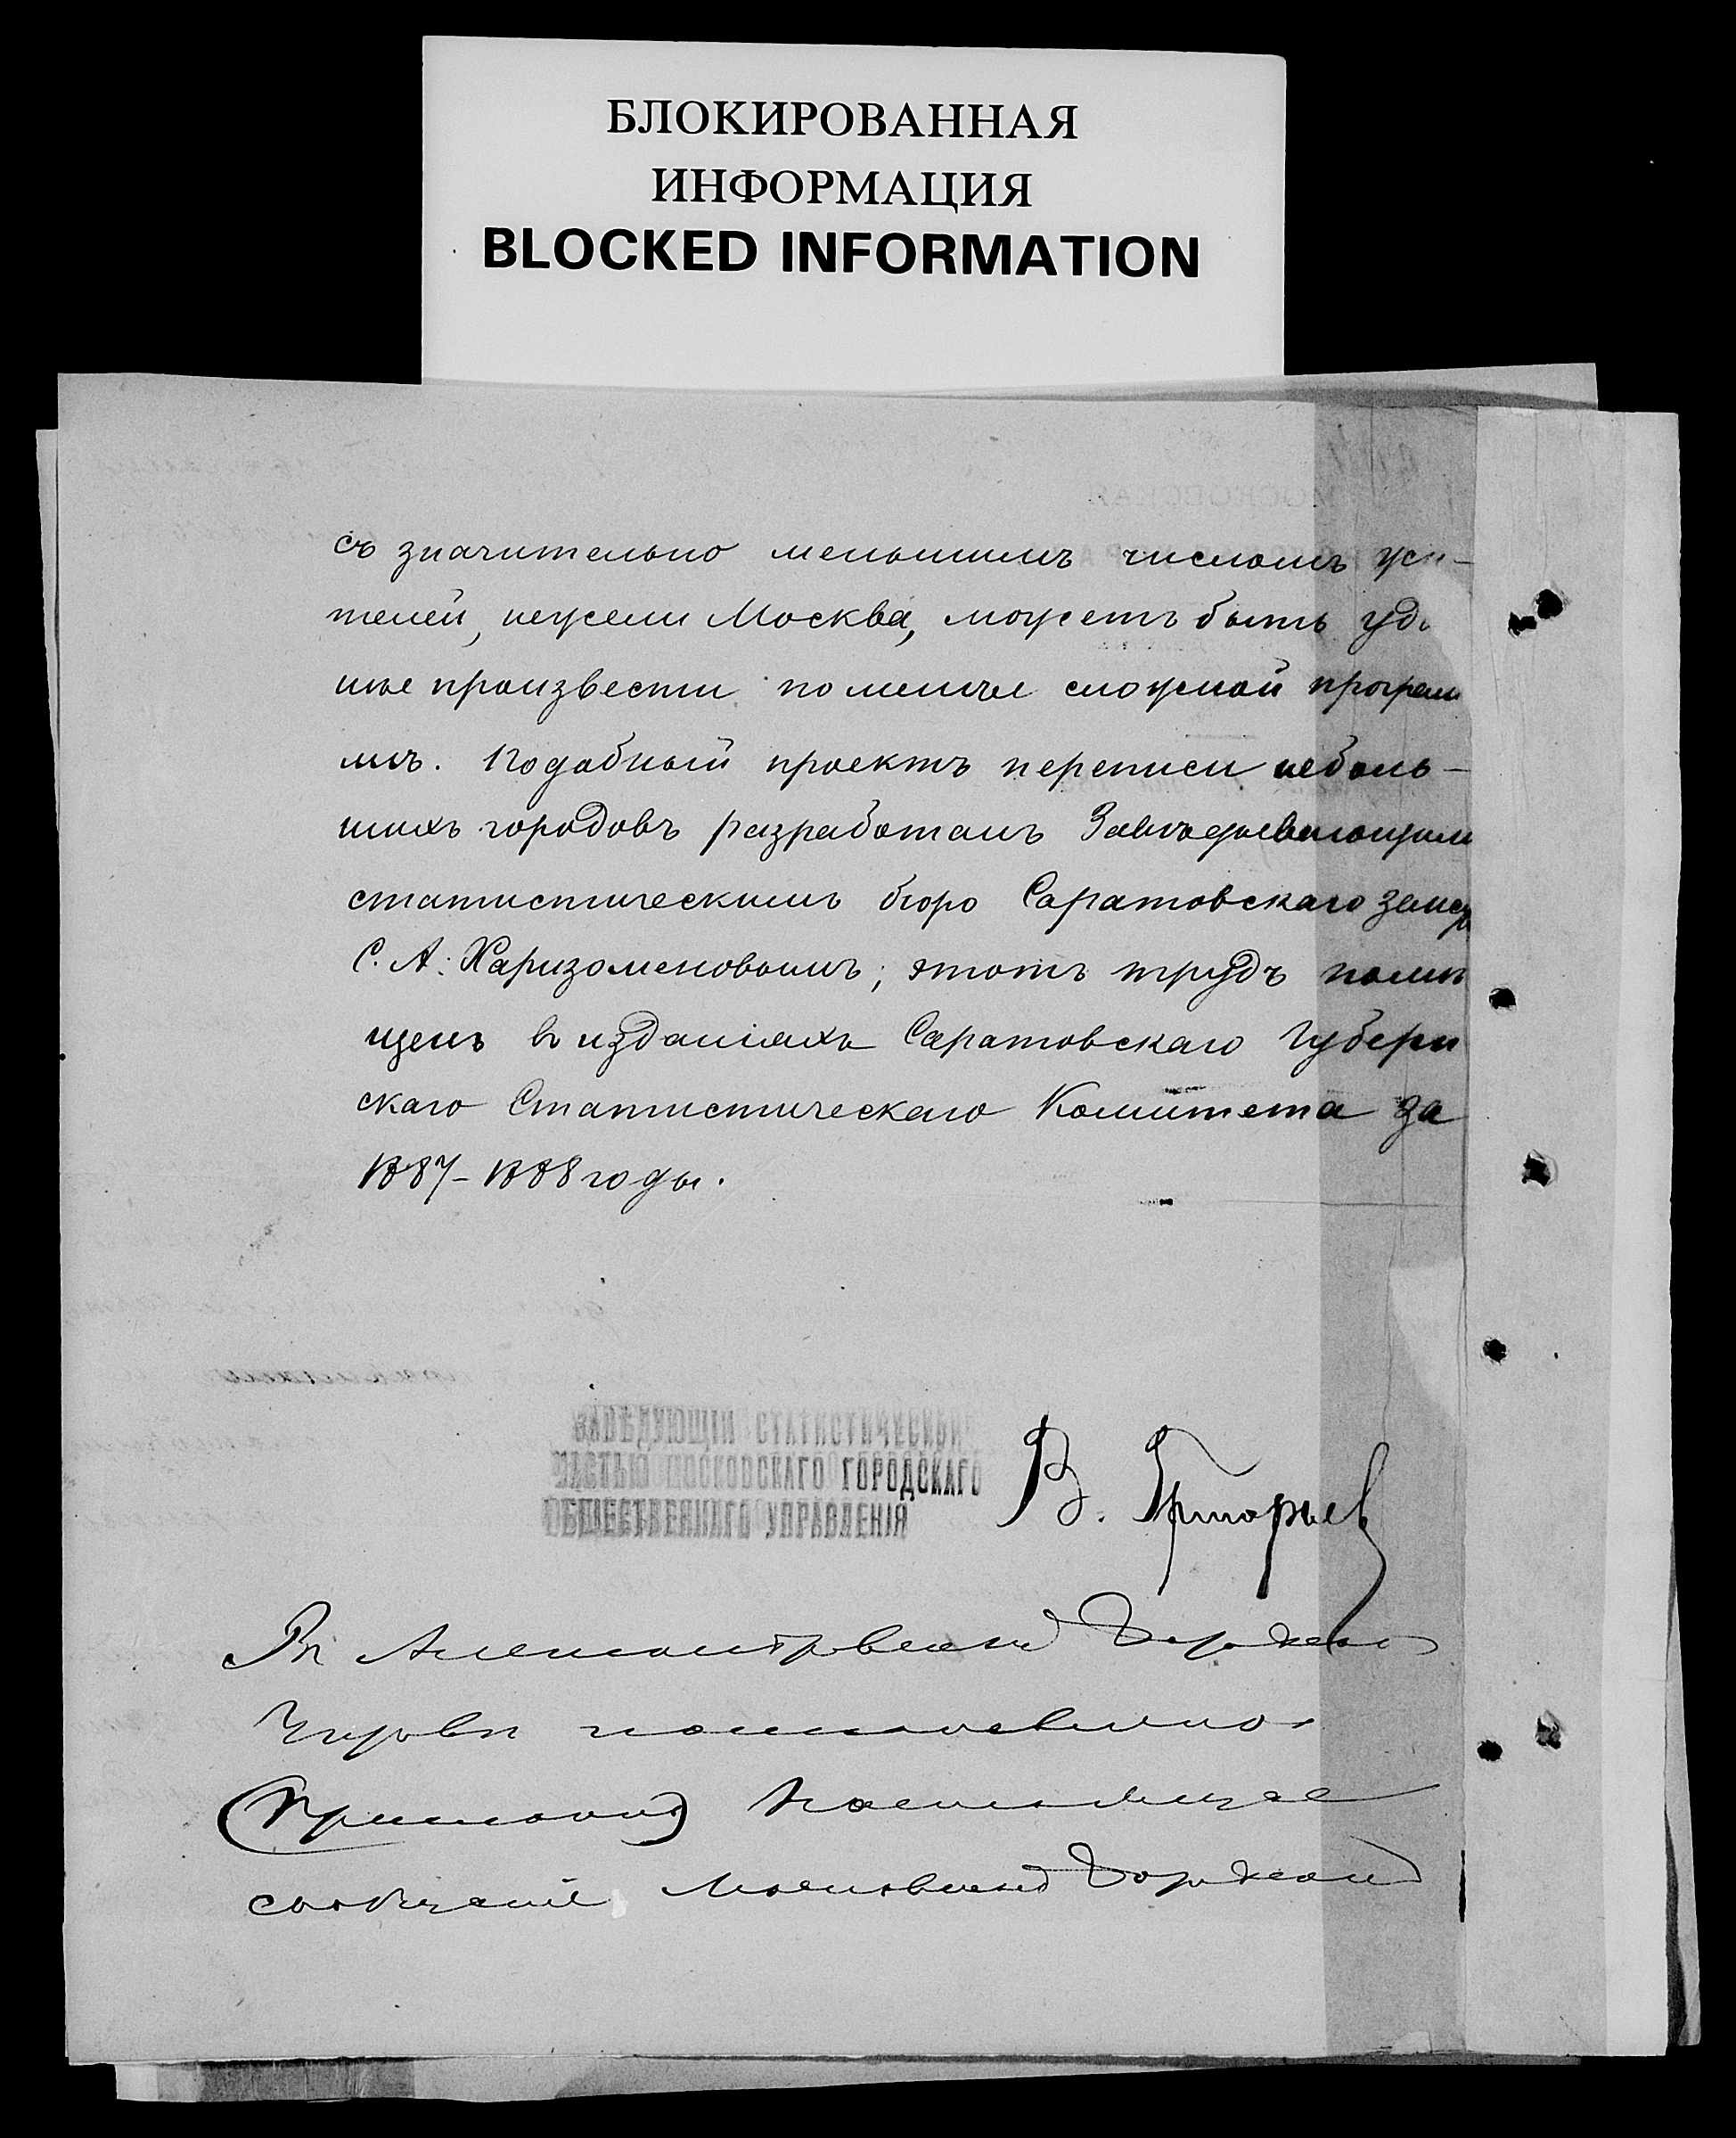 БЛОКИРОВАННАЯ
ИНФОРМАЦИЯ
BLOCKED INFORMATION
съ значительно меньшимъ числомъ жи-
телей, нежели Москва, можетъ быть
произвести по менѣе сложной програм
мѣ. Подобный проектъ переписи неболь-
шихъ городовъ разработанъ Завѣдывающимъ
статистическимъ бюро Саратовскаго земст
С. А. Харизоменовымъ; этотъ трудъ помѣ
щенъ въ изданіяхъ Саратовскаго Губерн
скаго Статистическаго Комитета за
1887-1888 годы.
ЗАВѢДУЮЩІЙ СТАТИСТИЧЕСКОЮ
ЧАСТЬЮ МОСКОВСКАГО ГОРОДСКАГО
ОБЩЕСТВЕННАГО УПРАВЛЕНІЯ
В. Григорьев
Въ
Управу
Настоящее
сообщеніе Московской Городской